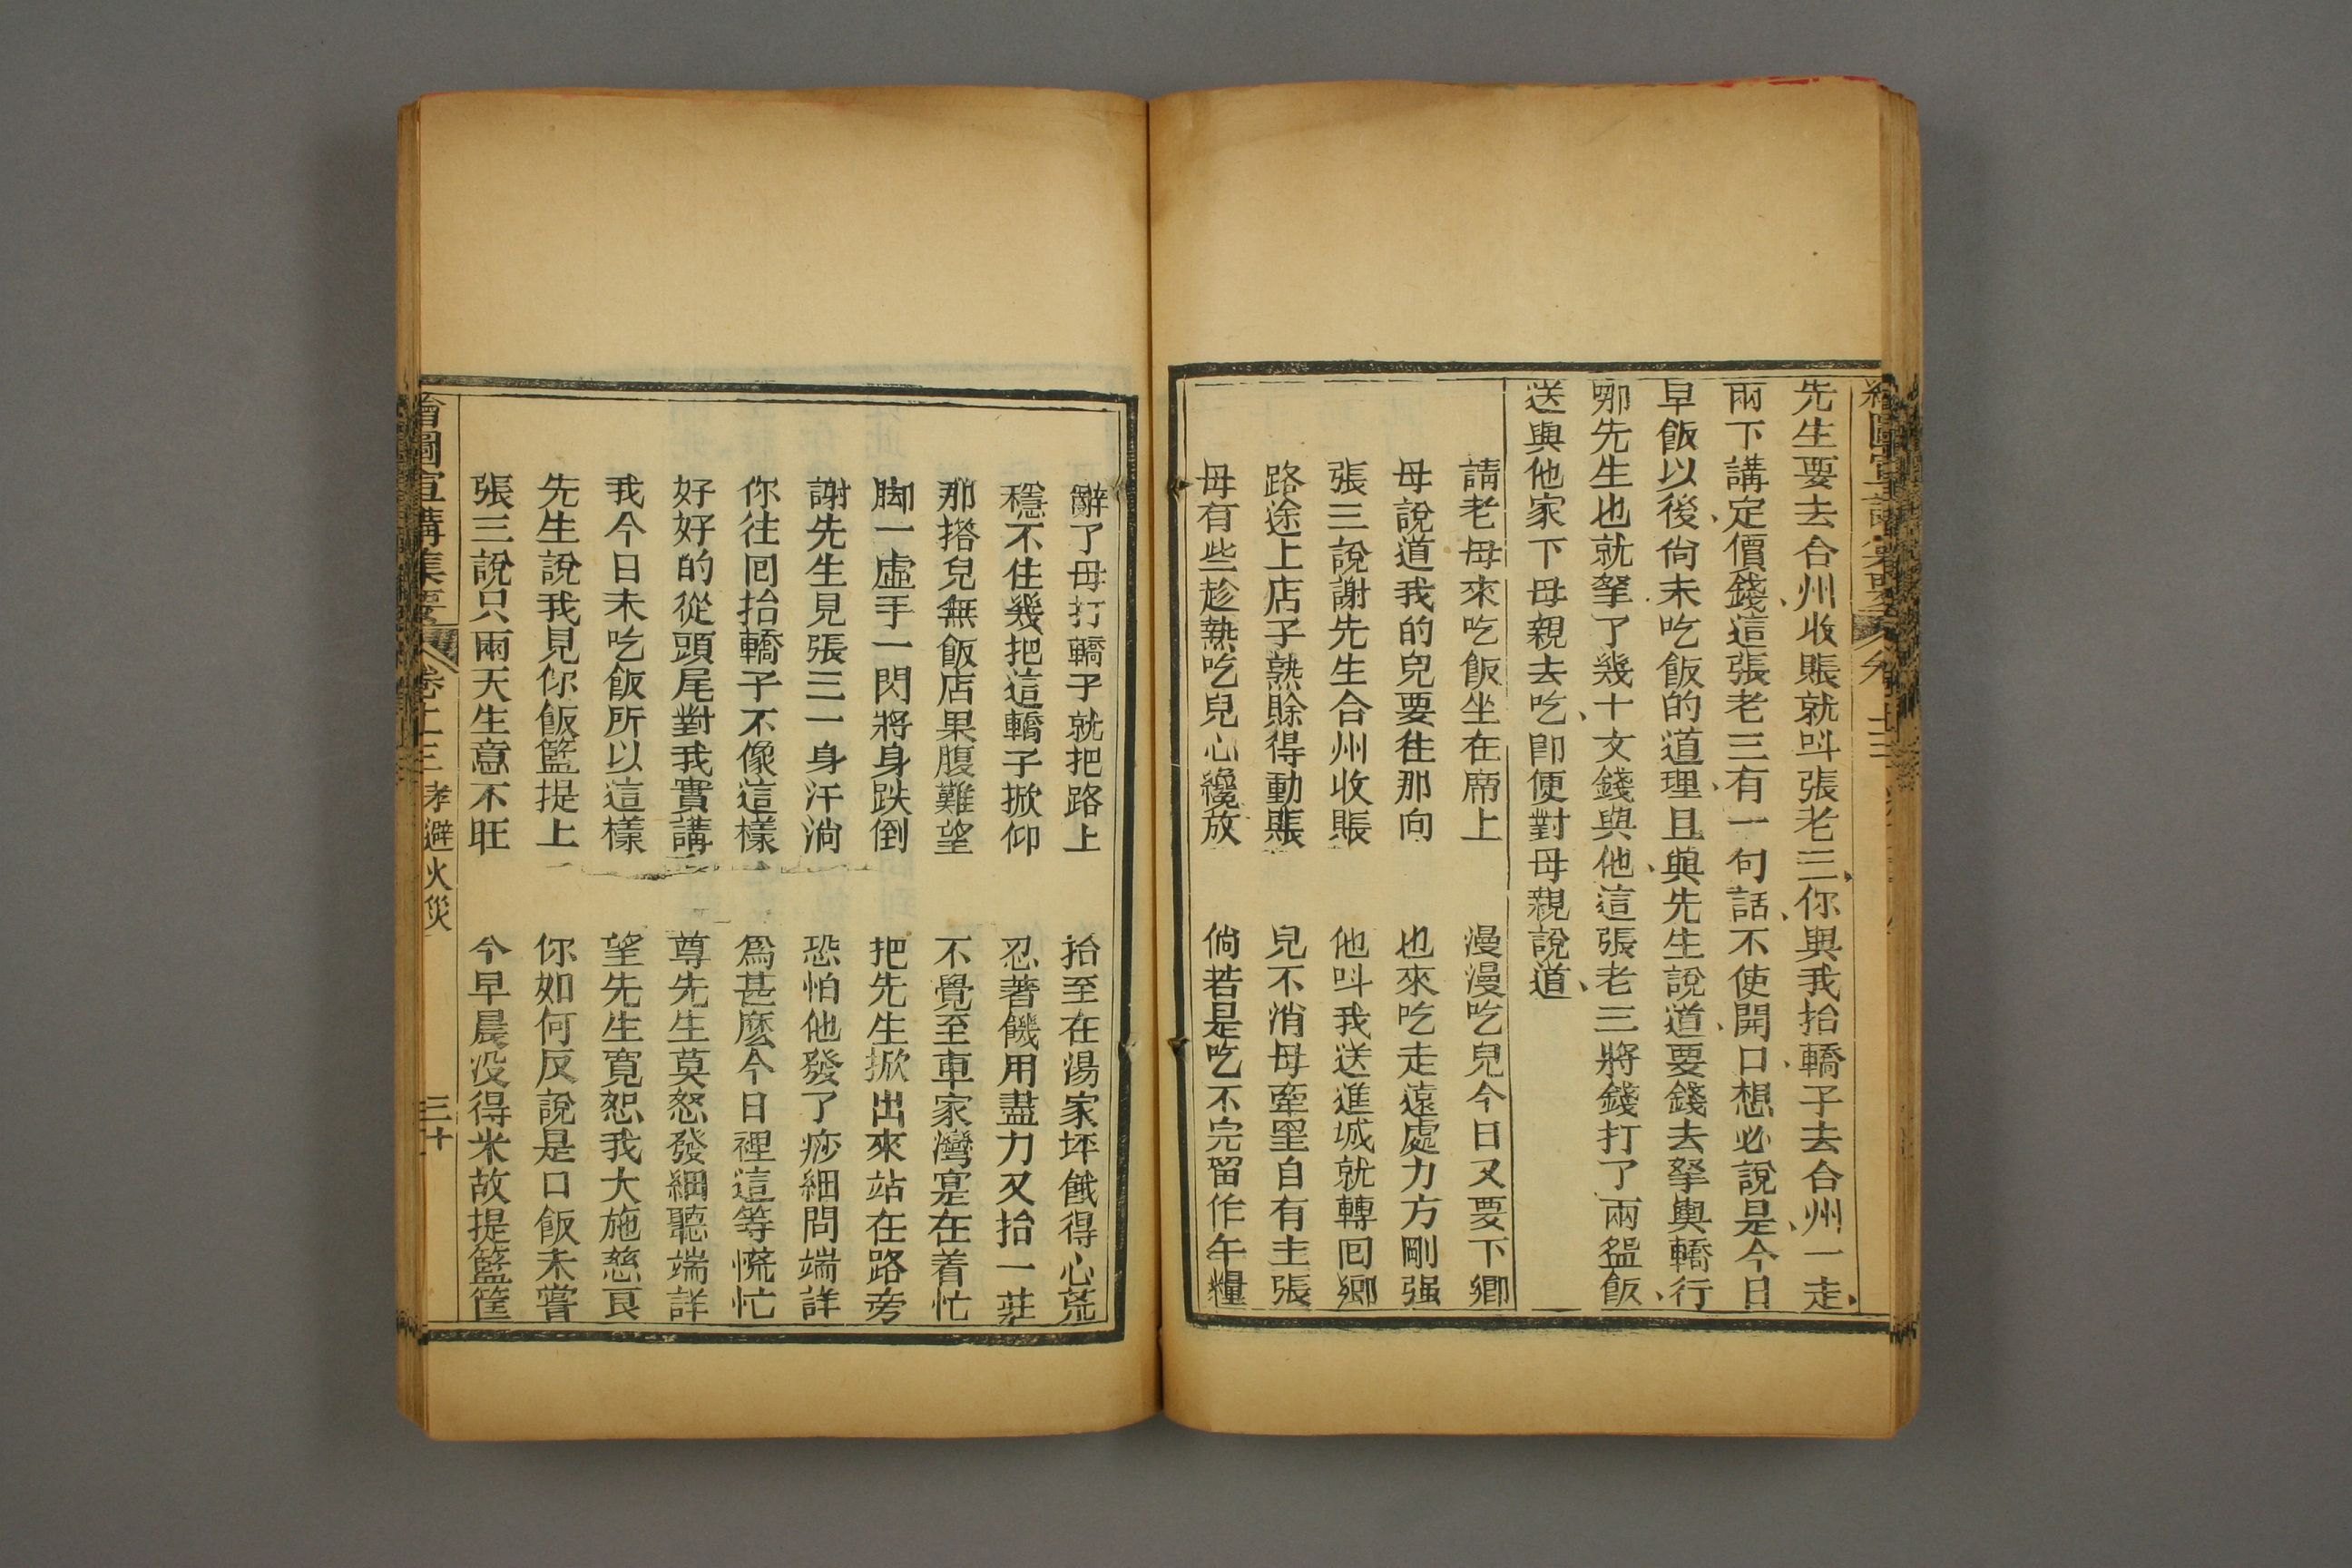 先生要去合州收賬就呌張老三你與我抬轎子去合州一走
兩下講定價錢這張老三有一句話不使開口想必說是今日
早飯以後尙未吃飯的道理且與先生說道要錢去拏輿轎行
哪先生也就拏了幾十文錢與他這張老三將錢打了兩盌飯
送與他家下母親去吃卽便對母親說道
請老母來吃飯坐在席上 漫漫吃兒今日又要下鄉
母說道我的兒要往那向 也來吃走遠處力方剛强
張三說謝先生合州收賬 他呌我送進城就轉囘鄉
路途上店子熟賒得動賬 兒不消母牽罣自有主張
母有些趁熱吃兒心纔放 倘若是吃不完留作午糧
辭了母打轎子就把路上 抬至在湯家坪餓得心荒
穩不住幾把這轎子掀仰 忍著饑用盡力又抬一莊
那撘兒無飯店果腹難望 不覺至車家灣寔在着忙
脚一虛手一閃將身跌倒 把先生掀出來站在路旁
謝先生見張三一身汗淌 恐怕他發了痧細問端詳
你往囘抬轎子不像這樣 爲甚麽今日裡這等慌忙
好好的從頭尾對我實講 尊先生莫怒發細聽端詳
我今日未吃飯所以這樣 望先生寬恕我大施慈良
先生說我見你飯籃提上 你如何反說是口飯未嘗
張三說只兩天生意不旺 今早晨没得米故提籃筐
繪圖宣講集要 卷十三 孝避火災 三十